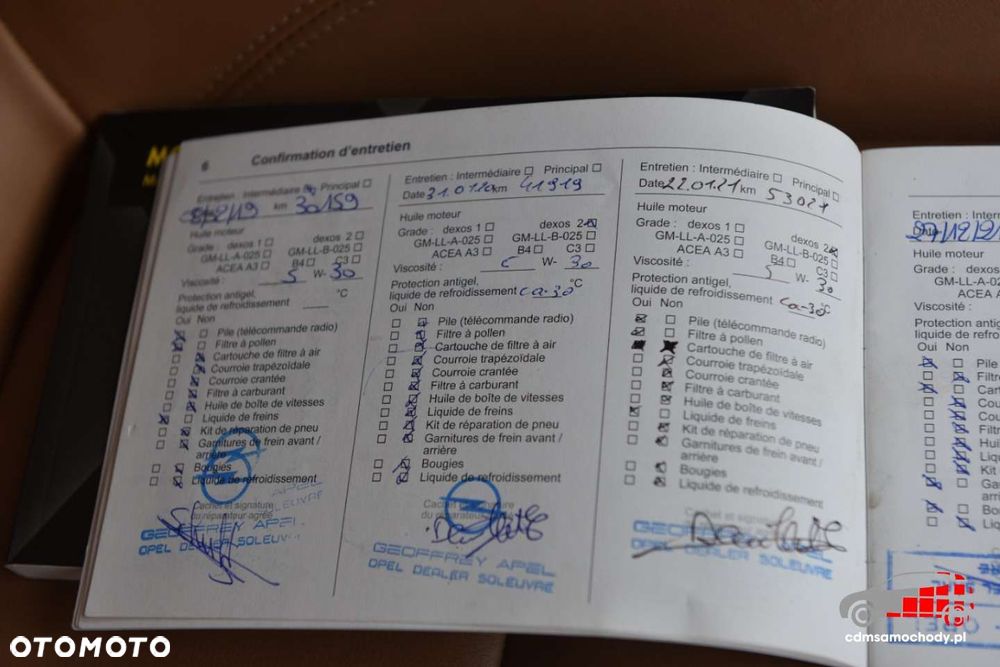 6 Confirmation d'entretien
Entretien : Intermédiaire Principal
km 30159
Huile moteur
Grade : dexos 1 dexos 2
GM-LL-A-025 GM-LL-B-025
ACEA A3 B4 C3
Viscosité : 5 W- 30
Protection antigel,
liquide de refroidissement °C
Oui Non
Pile (télécommande radio)
Filtre à pollen
Cartouche de filtre à air
Courroie trapézoïdale
Courroie crantée
Filtre à carburant
Huile de boîte de vitesses
Liquide de freins
Kit de réparation de pneu
Garnitures de frein avant /
arrière
Bougies
Liquide de refroidissement
Cachet et signature
du réparateur agréé
GEOFFREY APEL
OPEL DEALER SOLEUVRE
Entretien : Intermédiaire Principal
Date 31.01.20 km 41919
Huile moteur
Grade : dexos 1 dexos 2
GM-LL-A-025 GM-LL-B-025
ACEA A3 B4 C3
Viscosité : W- 30
Protection antigel,
liquide de refroidissement ca-38 °C
Oui Non
Pile (télécommande radio)
Filtre à pollen
Cartouche de filtre à air
Courroie trapézoïdale
Courroie crantée
Filtre à carburant
Huile de boîte de vitesses
Liquide de freins
Kit de réparation de pneu
Garnitures de frein avant /
arrière
Bougies
Liquide de refroidissement
Cachet et signature
du réparateur agréé
GEOFFREY APEL
OPEL DEALER SOLEUVRE
Entretien : Intermédiaire Principal
Date 22.01.21 km 53021
Huile moteur
Grade : dexos 1 dexos 2
GM-LL-A-025 GM-LL-B-025
ACEA A3 B4 C3
Viscosité : 5 W- 30
Protection antigel,
liquide de refroidissement ca-38 °C
Oui Non
Pile (télécommande radio)
Filtre à pollen
Cartouche de filtre à air
Courroie trapézoïdale
Courroie crantée
Filtre à carburant
Huile de boîte de vitesses
Liquide de freins
Kit de réparation de pneu
Garnitures de frein avant /
arrière
Bougies
Liquide de refroidissement
Cachet et signature
GEOFFREY APEL
OPEL DEALER SOLEUVRE
Entretien :
Huile moteur
Grade : dexos
GM-LL-A-025
ACEA
Viscosité :
Protection
liquide de
Oui Non
OTOMOTO
cdmsamochody.pl